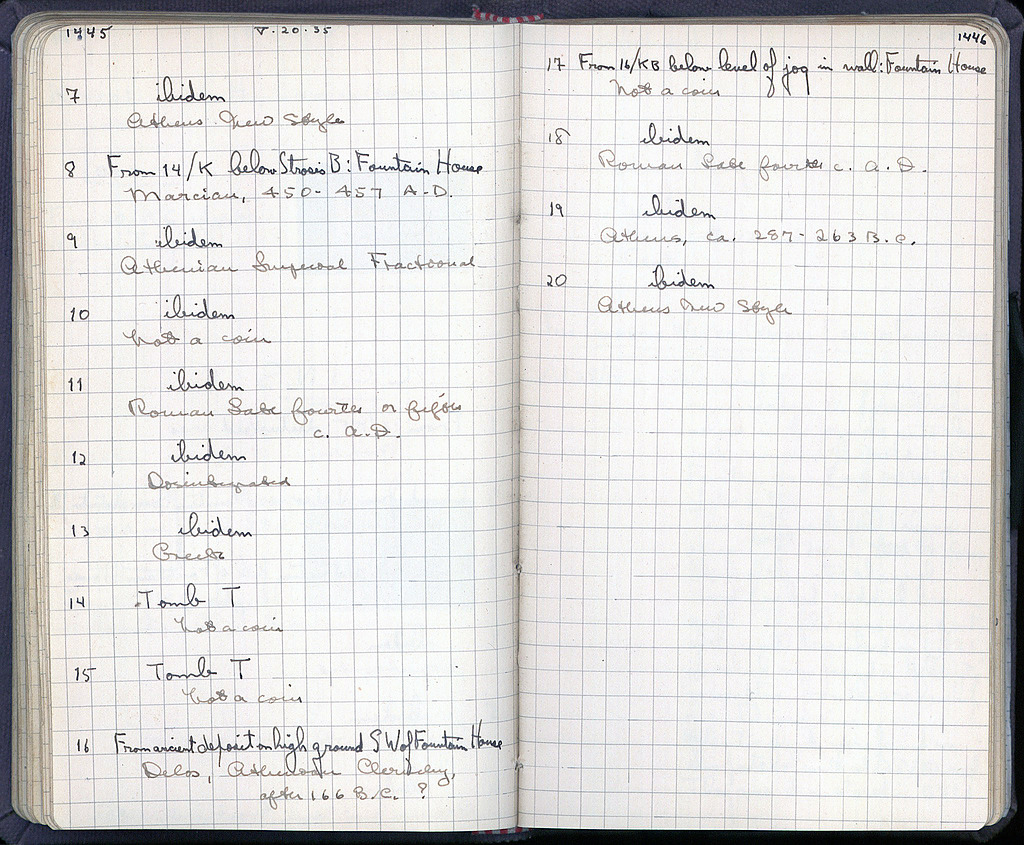 1445
V.20.35
7 ibidem
Athens New Style
8 From 14/K below Strosis B: Fountain House
Marcian, 450-457 A.D.
9 ibidem
Athenian Imperial Fractional
10 ibidem
Not a coin
11 ibidem
Roman late fourth or fifth
c. A.D.
12 ibidem
Disintegrated
13 ibidem
Greek
14 Tomb T
Not a coin
15 Tomb T
Not a coin
16 From ancient deposit on high ground SW of Fountain House
Delos, Athenian Cleruchy,
after 166 B.C. ?
1446
17 From 16/KB below level of jog in wall: Fountain House
Not a coin
18 ibidem
Roman late fourth c. A.D.
19 ibidem
Athens, ca. 287-263 B.C.
20 ibidem
Athens New Style